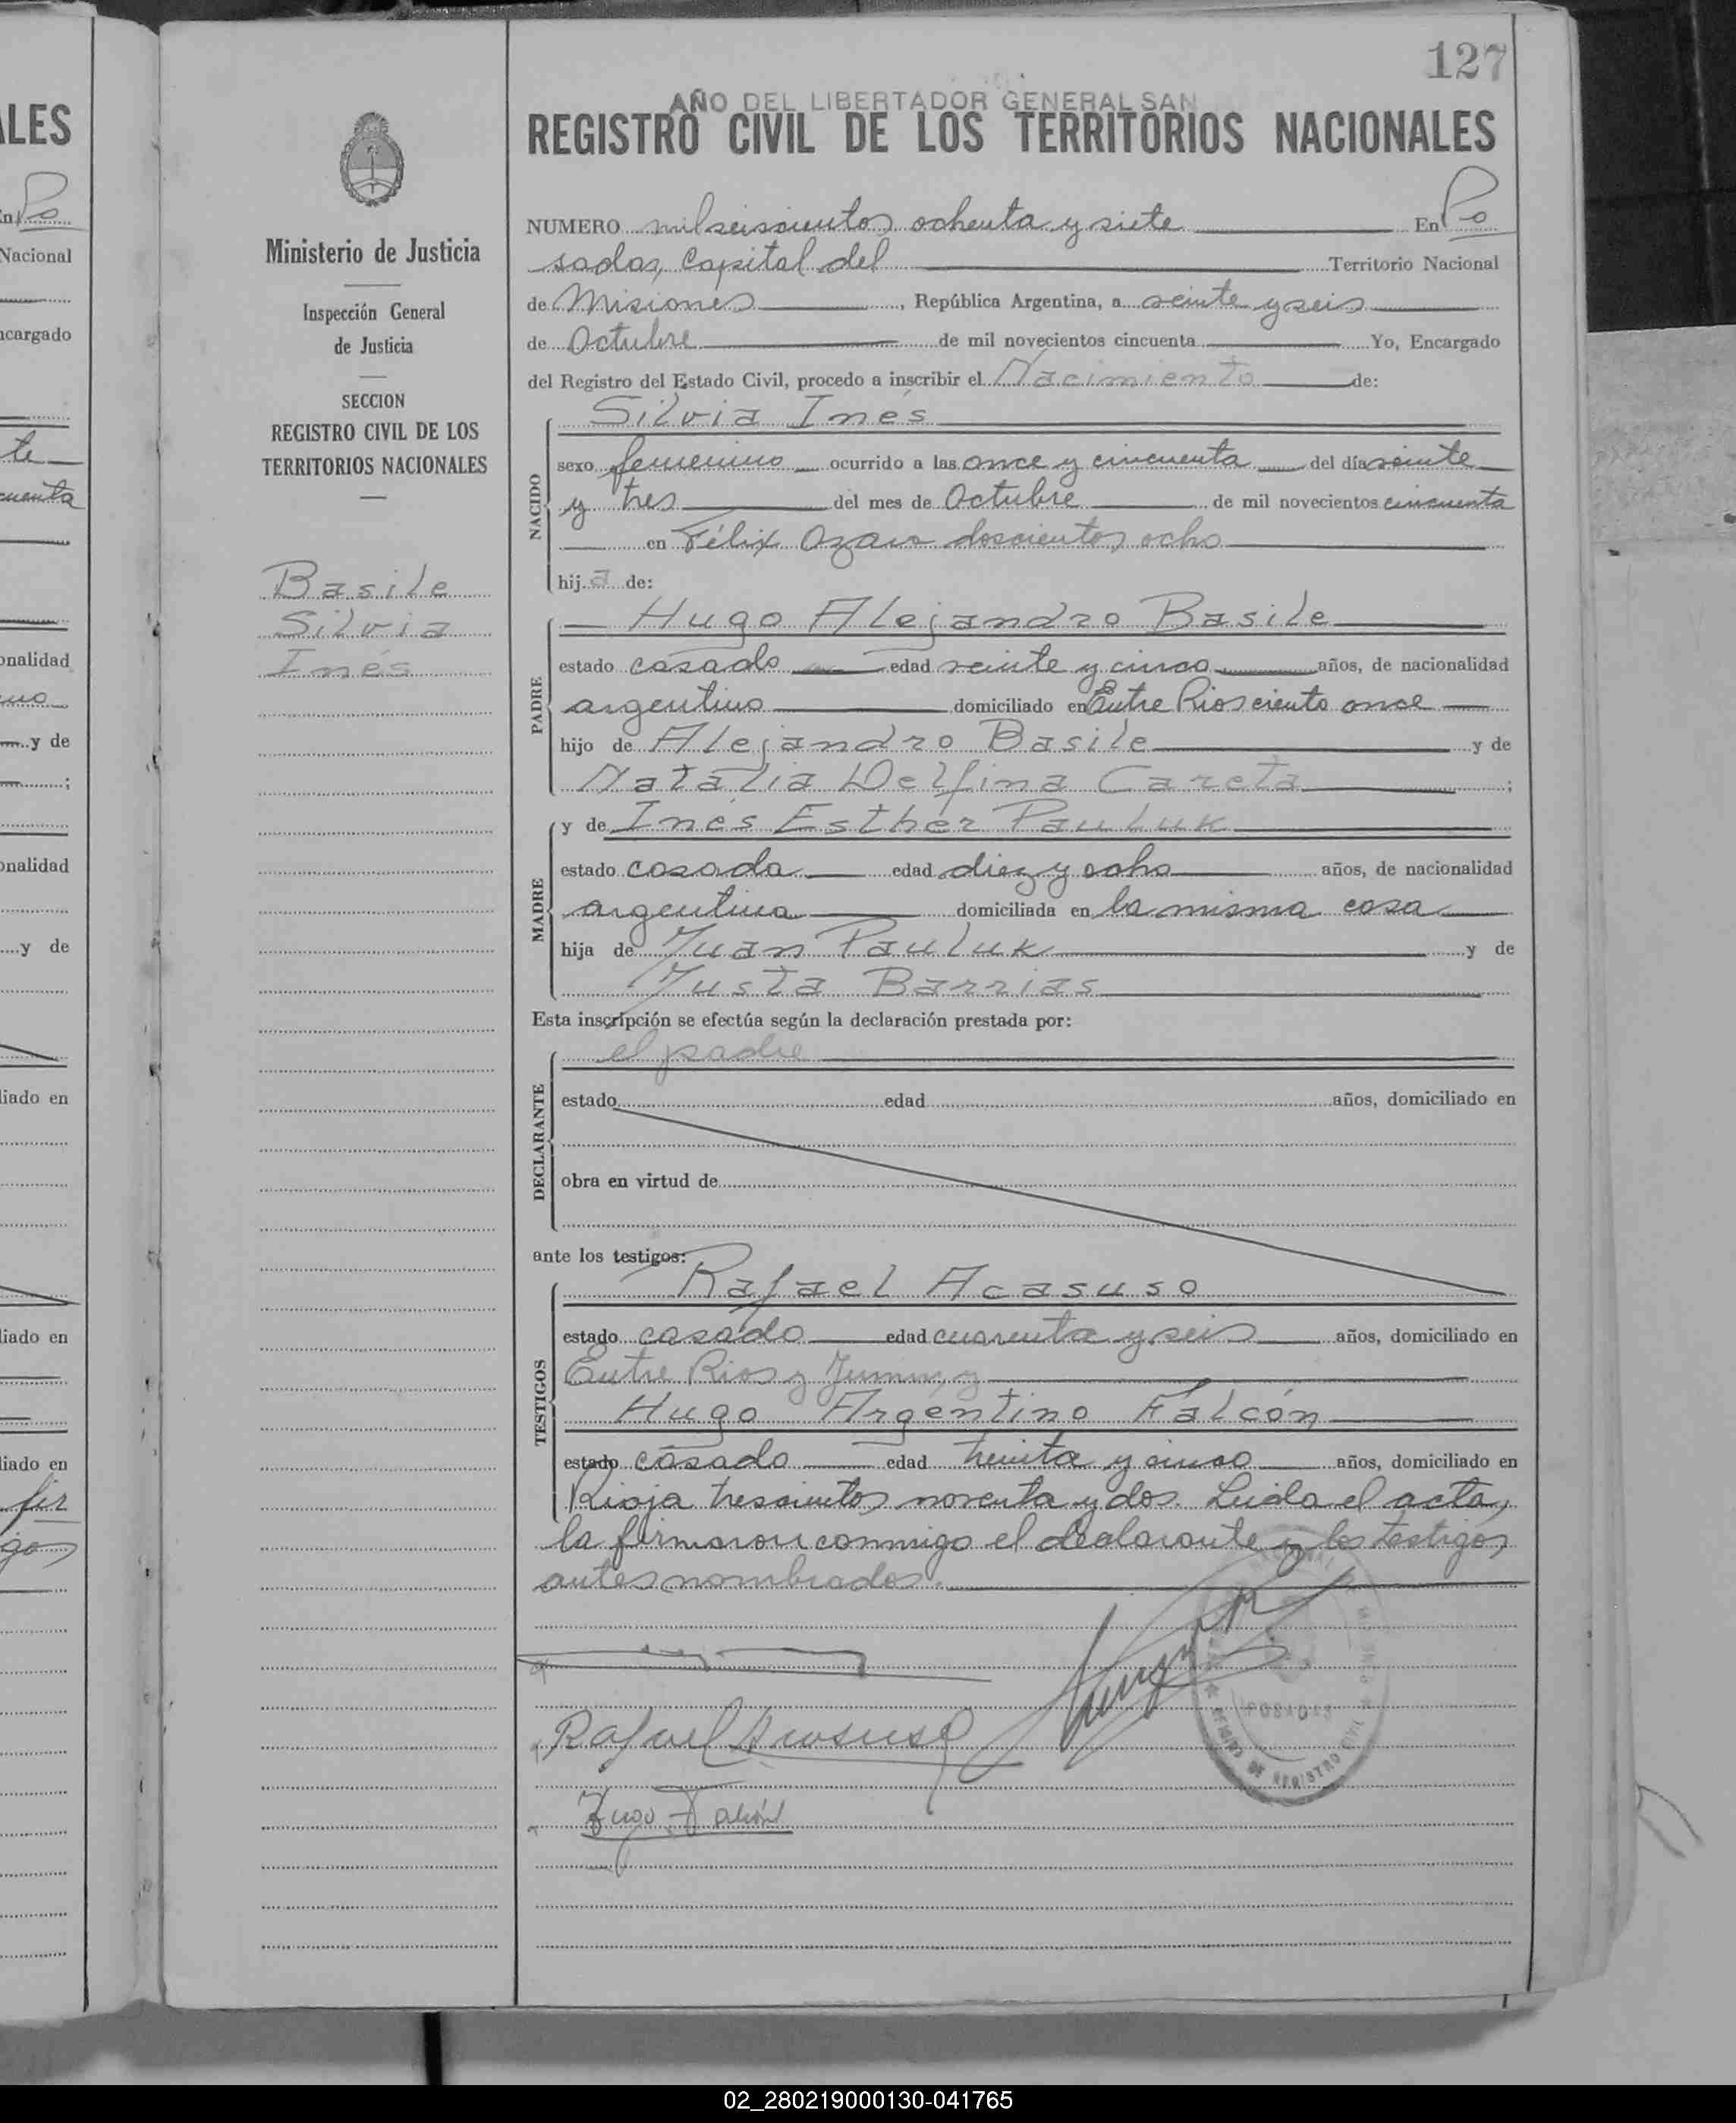 127
AÑO DEL LIBERTADOR GENERAL SAN
REGISTRO CIVIL DE LOS TERRITORIOS NACIONALES
Ministerio de Justicia
Inspección General
de Justicia
SECCION
REGISTRO CIVIL DE LOS
TERRITORIOS NACIONALES
Basile
Silvia
Inés
NUMERO mil seiscientos ochenta y siete En Po
sadas, Capital del Territorio Nacional
de Misiones, República Argentina, a veinte y seis
de Octubre de mil novecientos cincuenta Yo, Encargado
del Registro del Estado Civil, procedo a inscribir el Nacimiento de:
NACIDO
Silvia Inés
sexo femenino ocurrido a las once y cincuenta del día veinte
y tres del mes de Octubre de mil novecientos cincuenta
en Félix Azara doscientos ocho
hija de:
PADRE
Hugo Alejandro Basile
estado casado edad veinte y cinco años, de nacionalidad
argentino domiciliado en Entre Rios ciento once
hijo de Alejandro Basile y de
Natalia Delfina Careta;
MADRE
y de Inés Esther Pauluk
estado casada edad diez y ocho años, de nacionalidad
argentina domiciliada en la misma casa
hija de Juan Pauluk y de
Justa Barrias
Esta inscripción se efectúa según la declaración prestada por:
DECLARANTE
el padre
estado edad años, domiciliado en
obra en virtud de
ante los testigos:
TESTIGOS
Rafael Acasuso
estado casado edad cuarenta y seis años, domiciliado en
Entre Rios y
Hugo Argentino Falcón
estado casado edad treinta y cinco años, domiciliado en
Rioja trescientos noventa y dos. Leida el acta,
la firmaron conmigo el declarante y los testigos
antes nombrados.
Rafael Acasuso
Hugo Falcón
POSADAS
REGISTRO CIVIL
ALES
En Po
Nacional
ncargado
te
cuenta
onalidad
y de
;
onalidad
y de
liado en
liado en
liado en
fir
gos
02_280219000130-041765